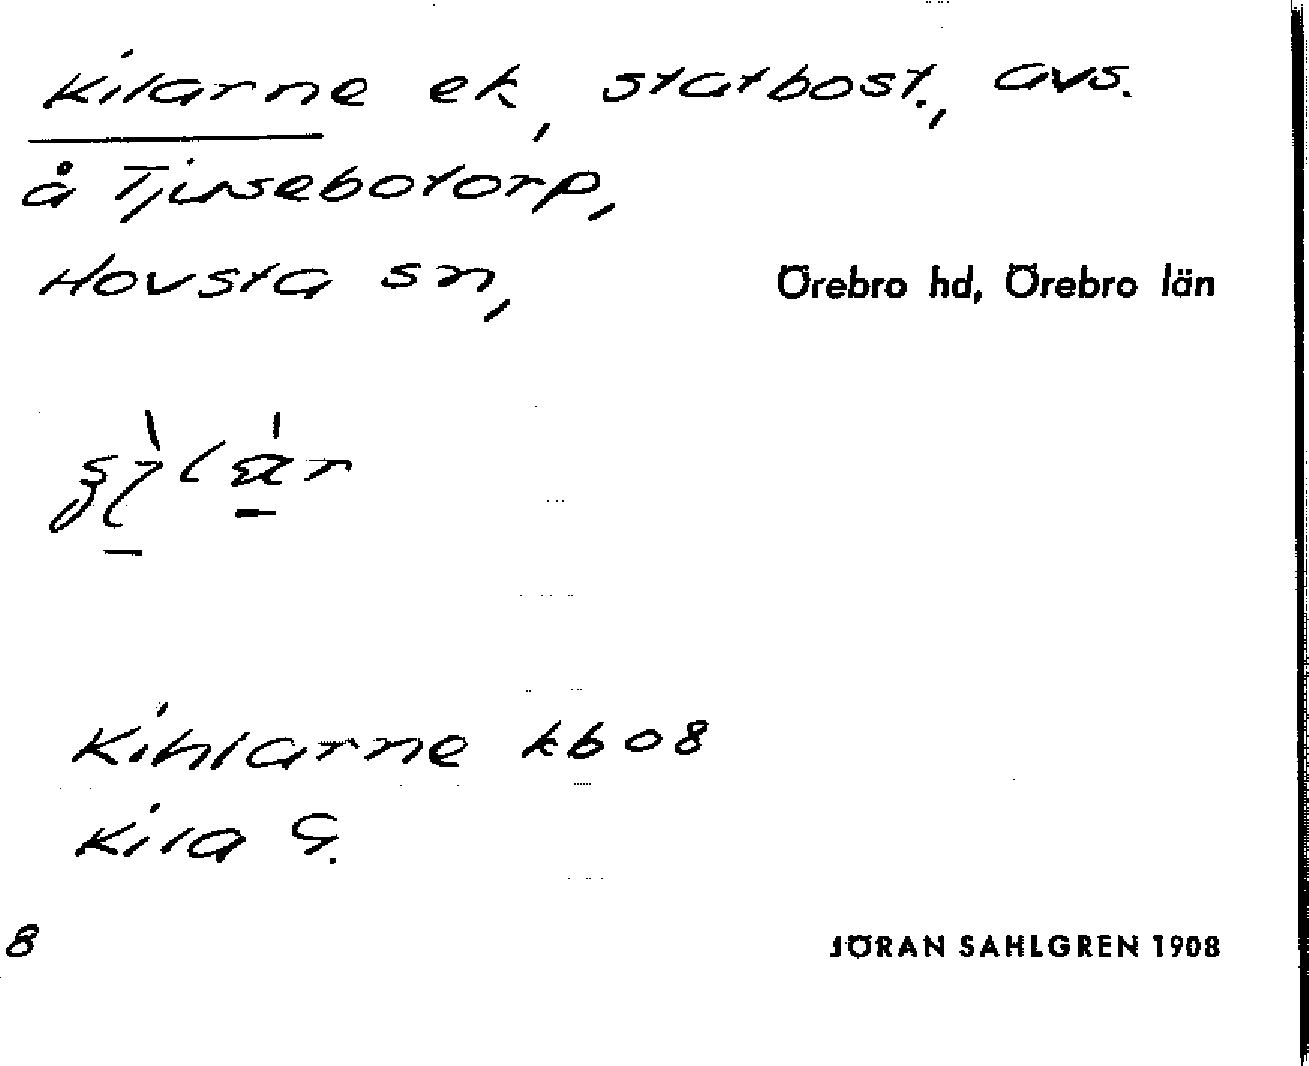 Kilarne ek, statbost., avs.
å Tjusebotorp,
Hovsta sn, Örebro hd, Örebro län
Kihlarne kb 08
Kila G.
8 JÖRAN SAHLGREN 1908